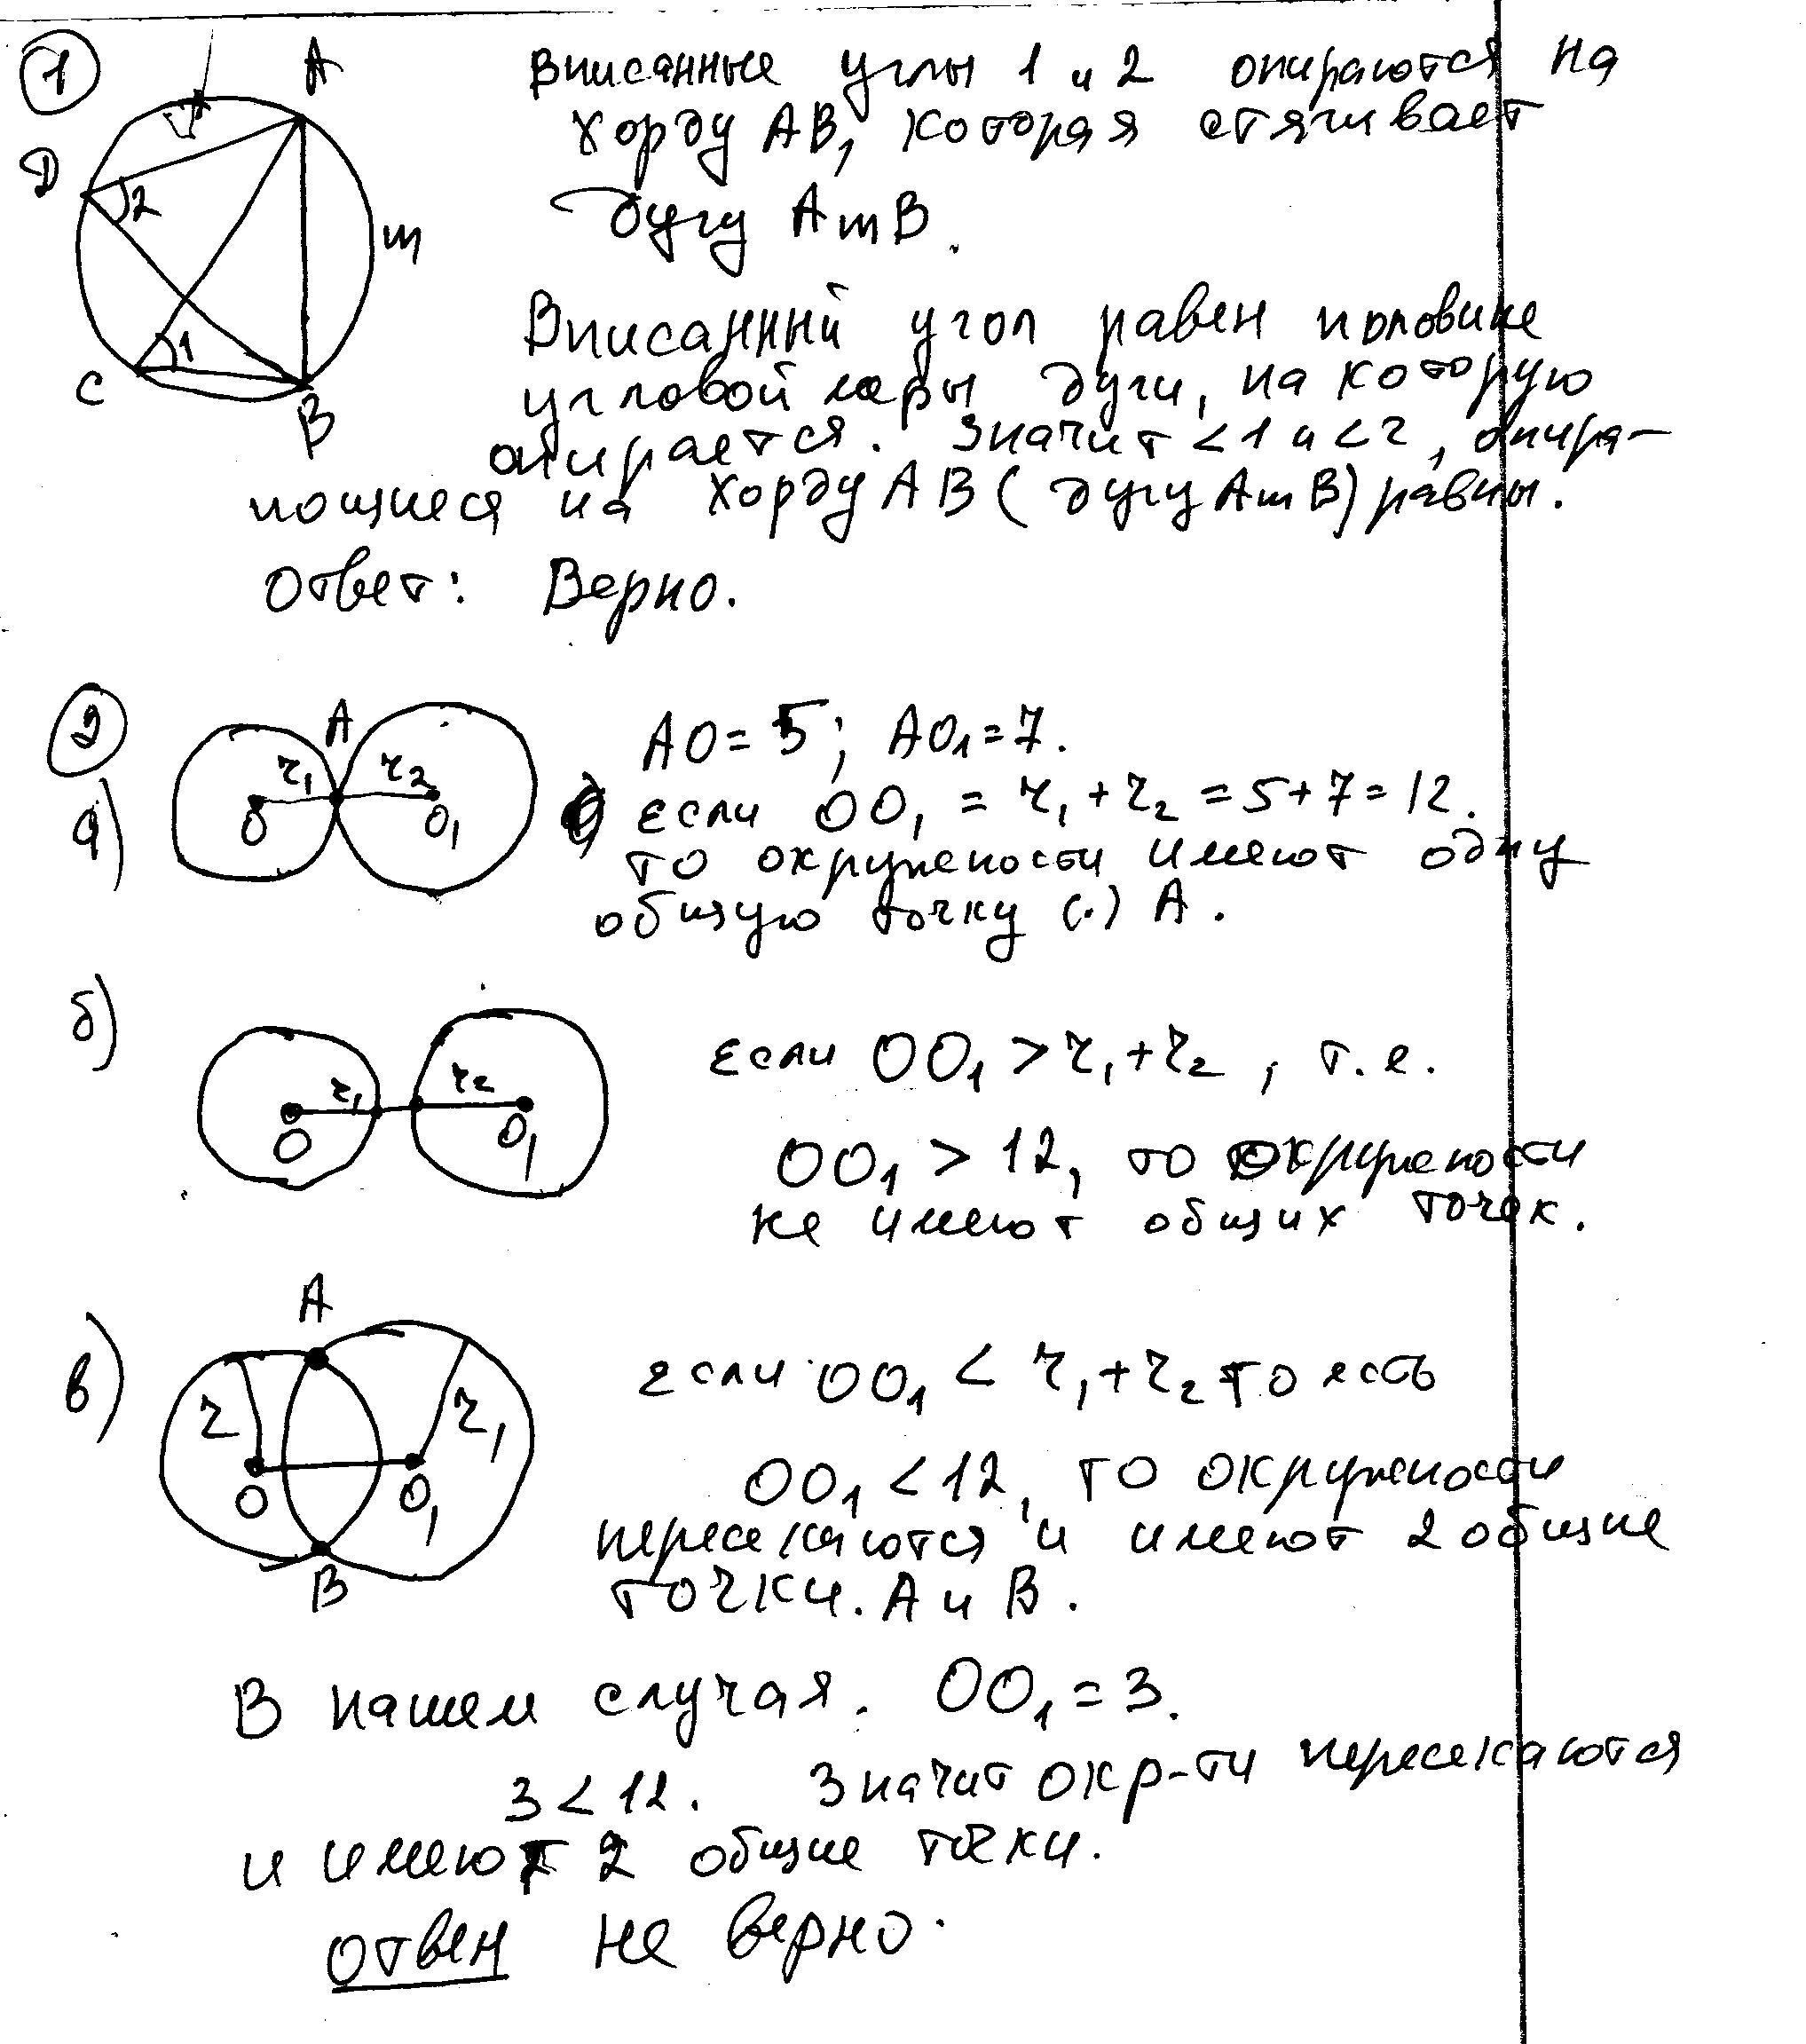 1
A
Вписанные углы 1 и 2 опираются на
хорду AB, которая стягивает
D
2
m
дугу AmB.
Вписанный угол равен половине
C
1
B
угловой меры дуги, на которую
опирается. Значит <1 и <2, опира-
ющиеся на хорду AB (дугу AmB) равны.
Ответ: Верно.
2
а)
A
r₁ r₂
O O₁
AO = 5; AO₁ = 7.
если OO₁ = r₁ + r₂ = 5 + 7 = 12.
то окружности имеют одну
общую точку (.) A.
б)
r₁ r₂
O O₁
если OO₁ > r₁ + r₂, т.е.
OO₁ > 12, то окружности
не имеют общих точек.
в)
A
r r₁
O O₁
B
если OO₁ < r₁ + r₂ то есть
OO₁ < 12, то окружности
пересекаются и имеют 2 общие
точки. A и B.
В нашем случая. OO₁ = 3.
3 < 12. Значит окр-ти пересекаются
и имеют 2 общие точки.
ответ не верно.